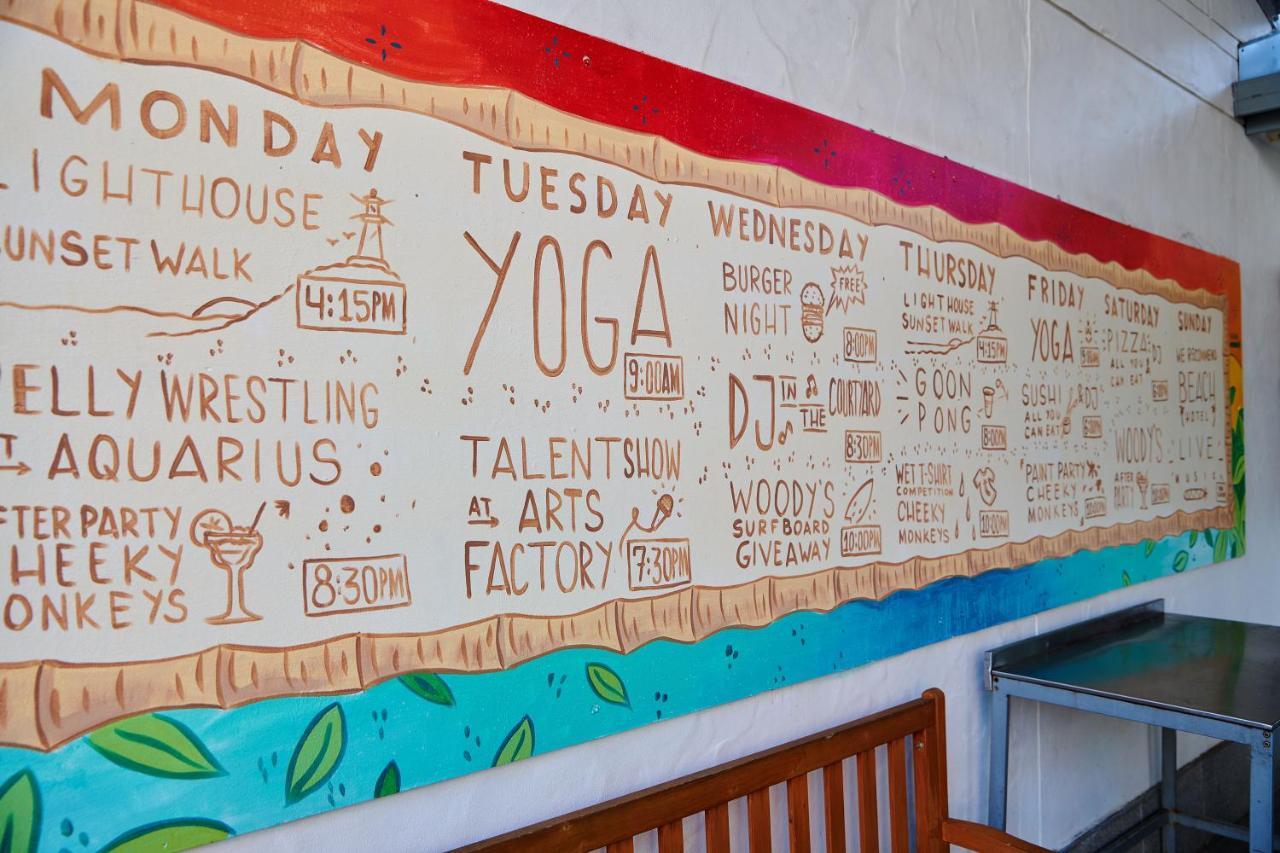 MONDAY
LIGHTHOUSE
SUNSET WALK
4:15PM
ELLY WRESTLING
AT
AQUARIUS
AFTER PARTY
CHEEKY
MONKEYS
8:30PM
TUESDAY
YOGA
9:00AM
TALENT SHOW
AT ARTS
FACTORY
7:30PM
WEDNESDAY
BURGER
NIGHT
FREE
8:00PM
DJ IN THE COURTYARD
8:30PM
WOODY'S
SURFBOARD
GIVEAWAY
10:00PM
THURSDAY
LIGHTHOUSE
SUNSET WALK
4:15PM
GOON
PONG
8:00PM
WET T-SHIRT
COMPETITION
CHEEKY
MONKEYS
10:00PM
FRIDAY
YOGA
SUSHI & DJ
ALL YOU
CAN EAT
PAINT PARTY
CHEEKY
MONKEYS
10:00PM
SATURDAY
PIZZA & DJ
ALL YOU
CAN EAT
WOODY'S
AFTER
PARTY
10:00PM
SUNDAY
WE RECOMMEND
BEACH
HOTEL
LIVE
MUSIC